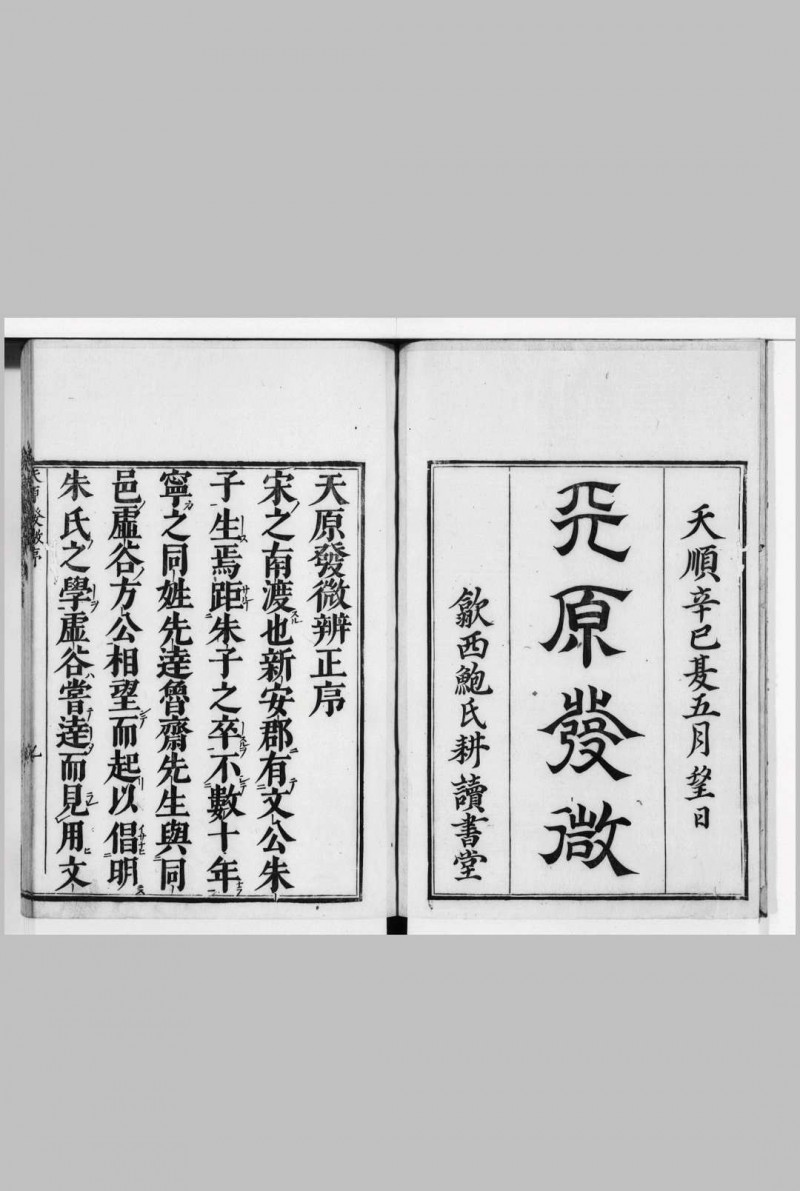 天順辛巳夏五月望日
天原發微
歙西鮑氏耕讀書堂
天原發微辨正序
宋之南渡也新安郡有文公朱
子生焉距朱子之卒不數十年
寧之同姓先逹魯齋先生與同
邑虛谷方公相望而起以倡明
朱氏之學虛谷嘗逹而見用文